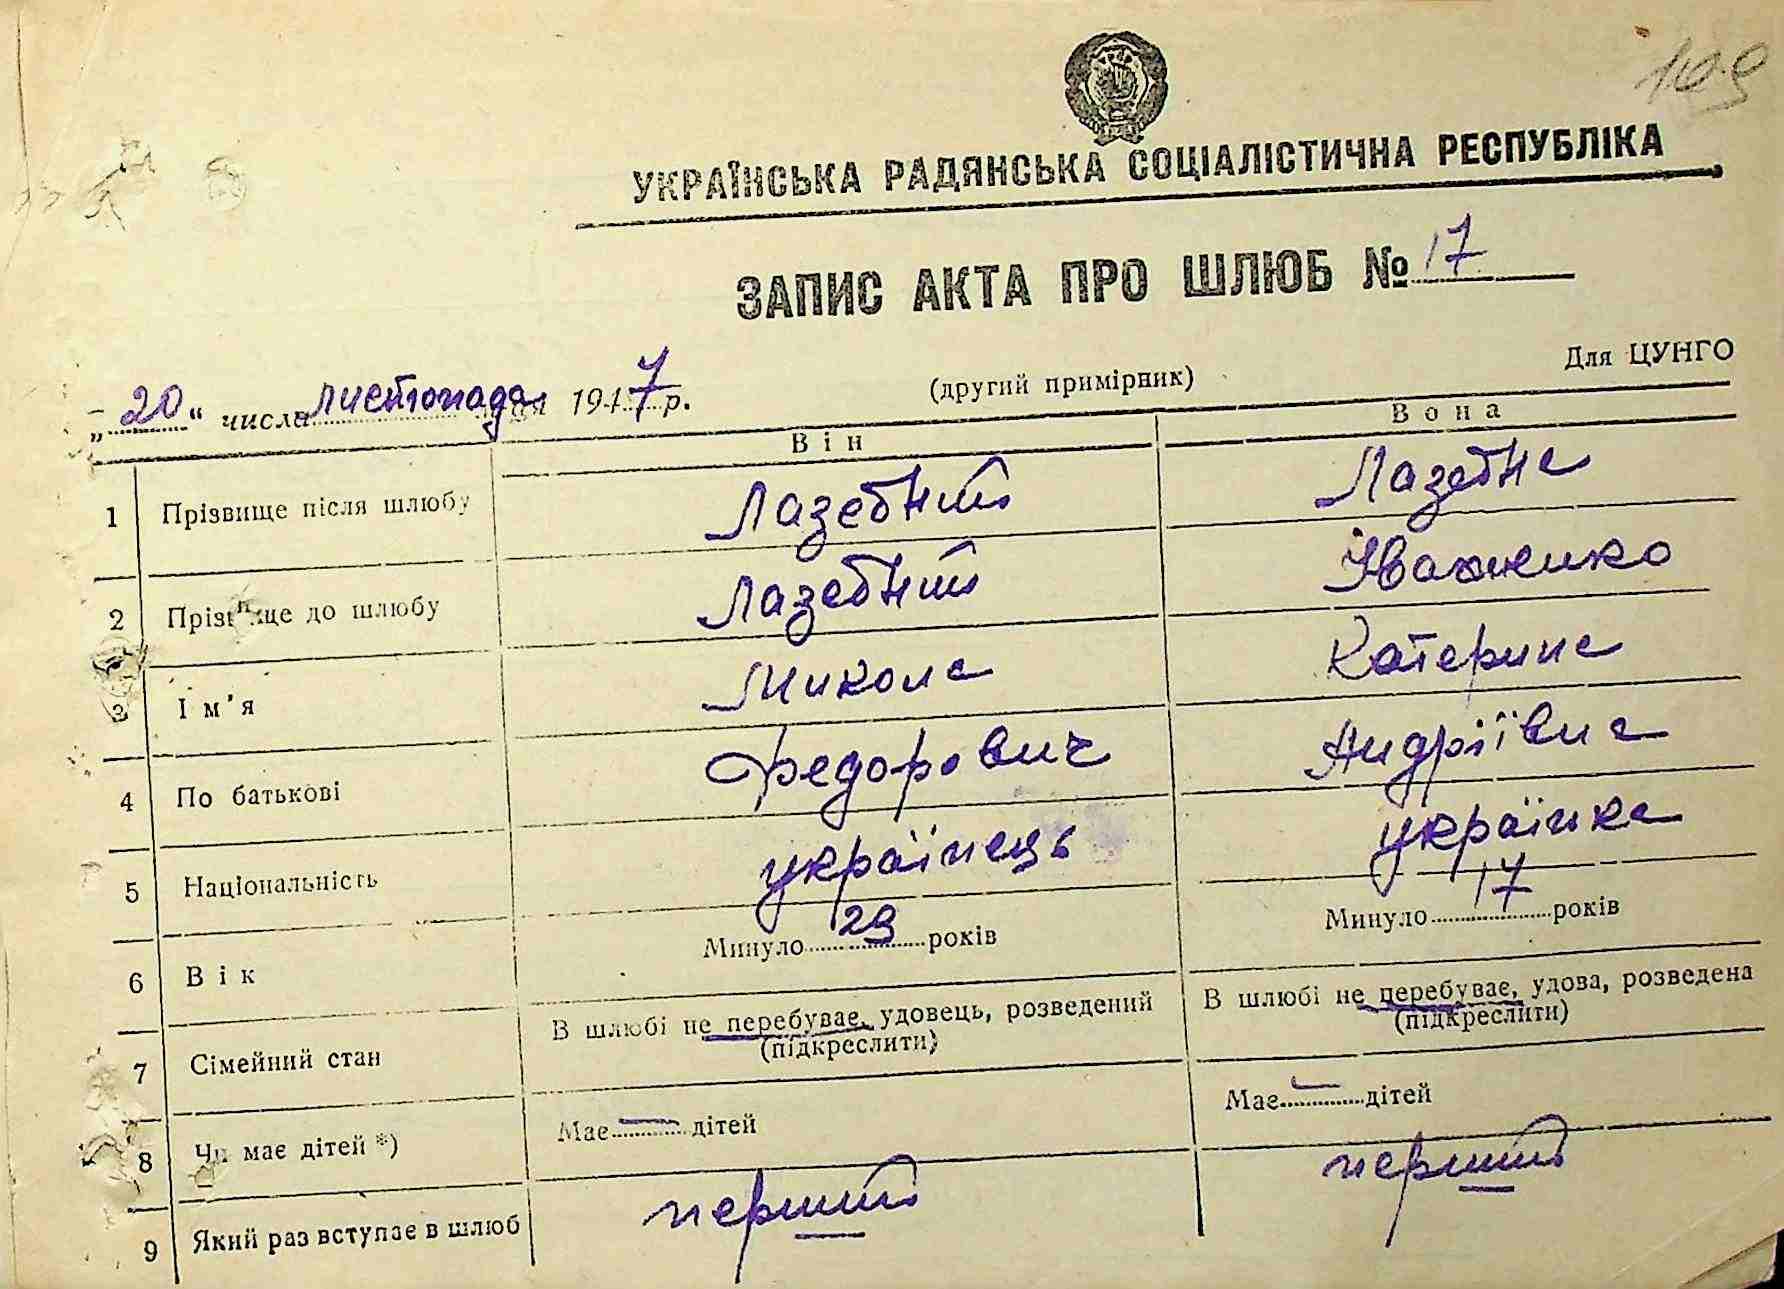 109
УКРАЇНСЬКА РАДЯНСЬКА СОЦІАЛІСТИЧНА РЕСПУБЛІКА
ЗАПИС АКТА ПРО ШЛЮБ № 17
Для ЦУНГО
„20“ числа листопада 1947 р. (другий примірник)
Він Вона
1 Прізвище після шлюбу Лазебний Лазебна
2 Прізвище до шлюбу Лазебний Іваненко
3 Ім'я Микола Катерина
4 По батькові Федорович Андріївна
5 Національність українець українка
6 Вік Минуло 29 років Минуло 17 років
7 Сімейний стан В шлюбі не перебуває, удовець, розведений В шлюбі не перебуває, удова, розведена
(підкреслити) (підкреслити)
8 Чи має дітей *) Має — дітей Має — дітей
9 Який раз вступає в шлюб перший перший